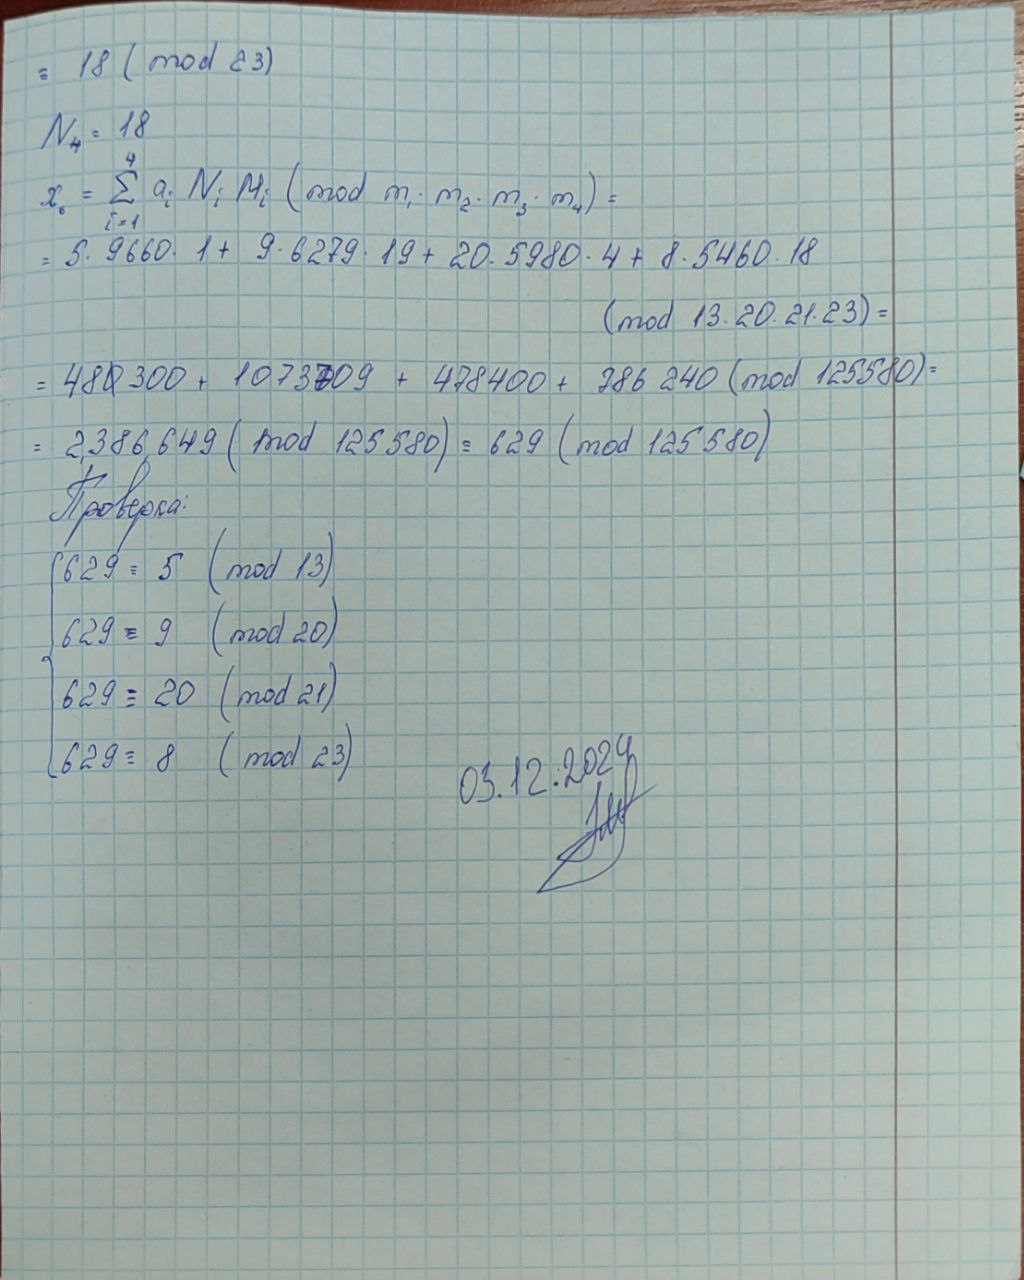 ≡ 18 ( mod 23)
N₄ = 18
x₀ = ∑ᵢ₌₁⁴ aᵢ Nᵢ Mᵢ (mod m₁ · m₂ · m₃ · m₄) =
= 5 · 9660 · 1 + 9 · 6279 · 19 + 20 · 5980 · 4 + 8 · 5460 · 18
(mod 13 · 20 · 21 · 23) =
= 48 300 + 1073709 + 478400 + 786 240 (mod 125580) =
= 2,386,649 ( mod 125580) ≡ 629 (mod 125580)
Проверка:
629 ≡ 5 (mod 13)
629 ≡ 9 (mod 20)
629 ≡ 20 (mod 21)
629 ≡ 8 (mod 23)
03.12.2024